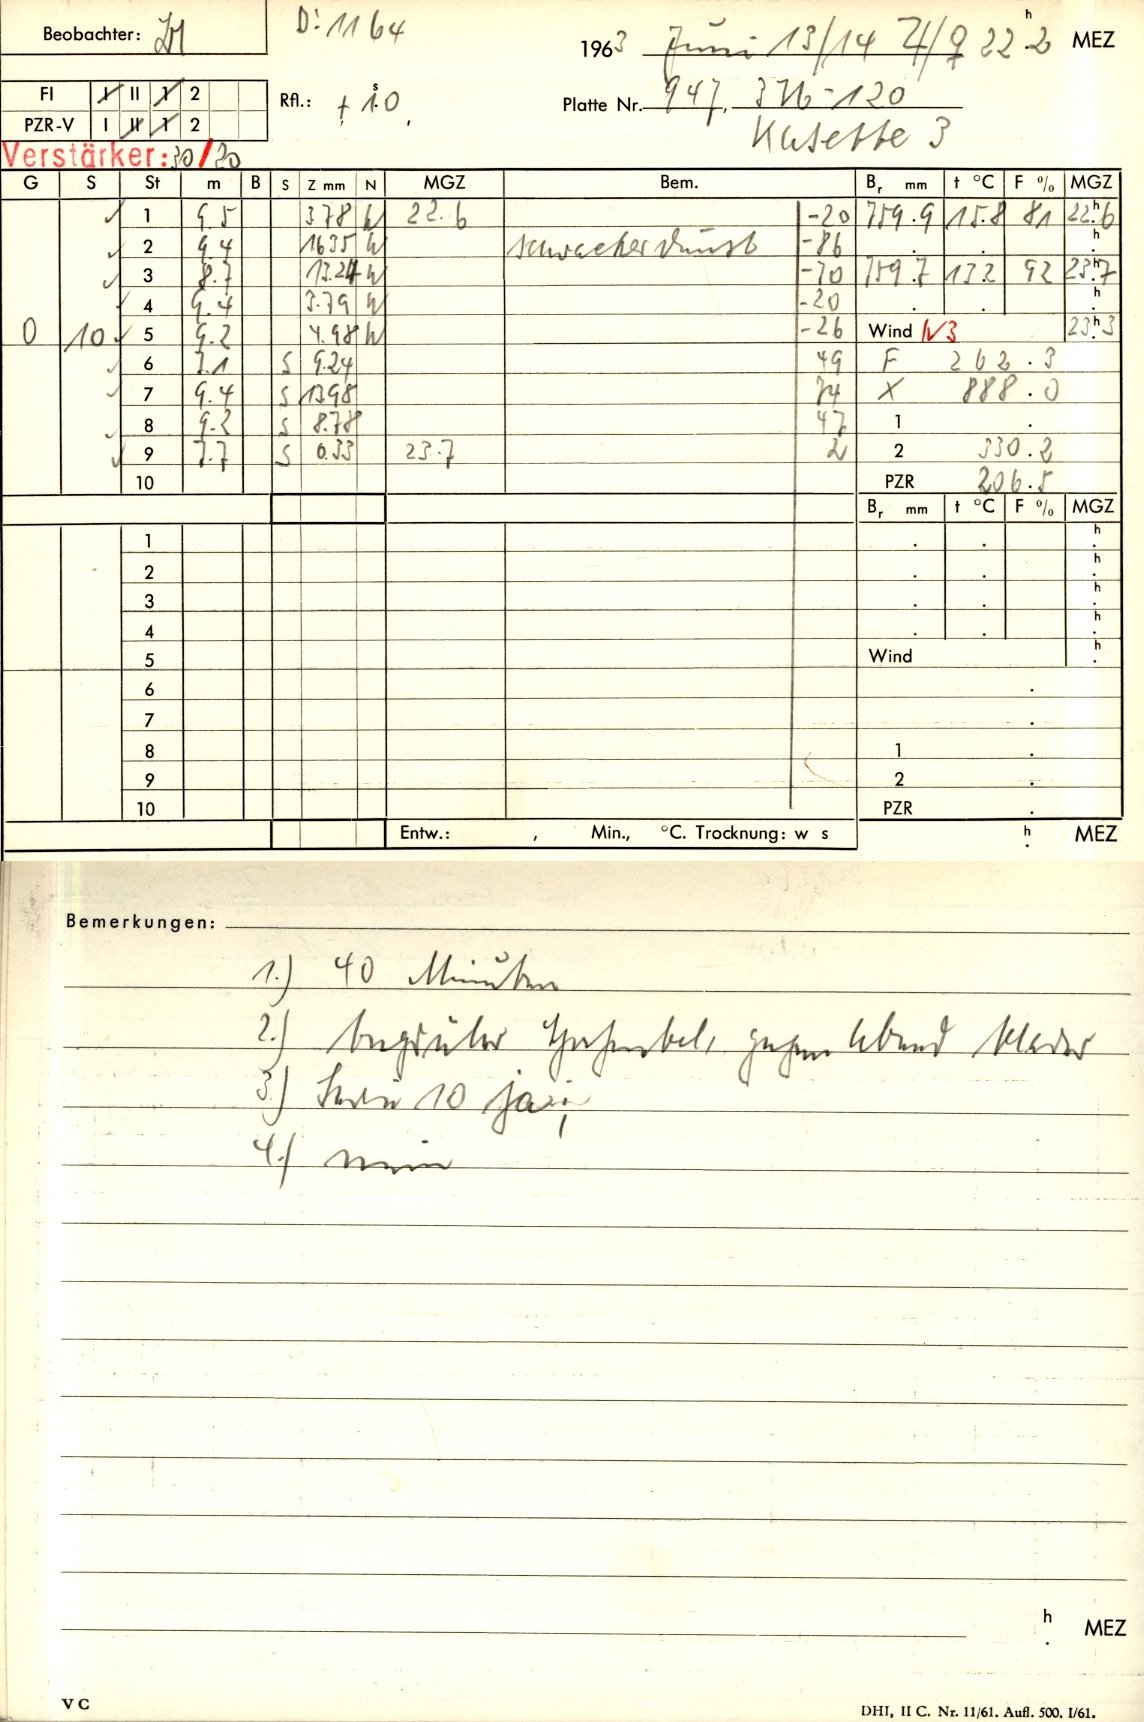 Beobachter:
D: 1164
1963 Juni 13/14 ♃/♀ 22ʰ.2 MEZ
FI I II 1 2
PZR-V I II 1 2
Rfl.: + 1ˢ.0
Platte Nr. 947, 376-120
Kasette 3
Verstärker: 30/20
G S St m B S Z mm N MGZ Bem. Bᵣ mm t °C F % MGZ
1 9.5 3.78 W 22.6 -20 759.9 15.8 81 22ʰ.6
2 9.4 16.35 W schwacher Dunst -86 . . ʰ
3 8.7 13.24 W -70 759.7 13.2 92 23ʰ.7
4 9.4 3.79 W -20 . . ʰ
0 10 5 9.2 4.98 W -26 Wind N3 23ʰ.3
6 7.1 S 9.24 49 F 262.3
7 9.4 S 13.98 74 X 888.0
8 9.2 S 8.78 47 1 .
9 7.7 S 0.33 23.7 2 2 330.2
10 PZR 206.5
Bᵣ mm t °C F % MGZ
1 . . ʰ.
2 . . ʰ.
3 . . ʰ.
4 . . ʰ.
5 Wind ʰ.
6 .
7 .
8 1 .
9 2 .
10 PZR .
Entw.: , Min., °C. Trocknung: w s ʰ. MEZ
Bemerkungen:
1.) 40 Minuten
2.) gegen Abend klarer
3.) Serie 10 ja;
4.) nein
ʰ. MEZ
V C
DHI, II C. Nr. 11/61. Aufl. 500. I/61.